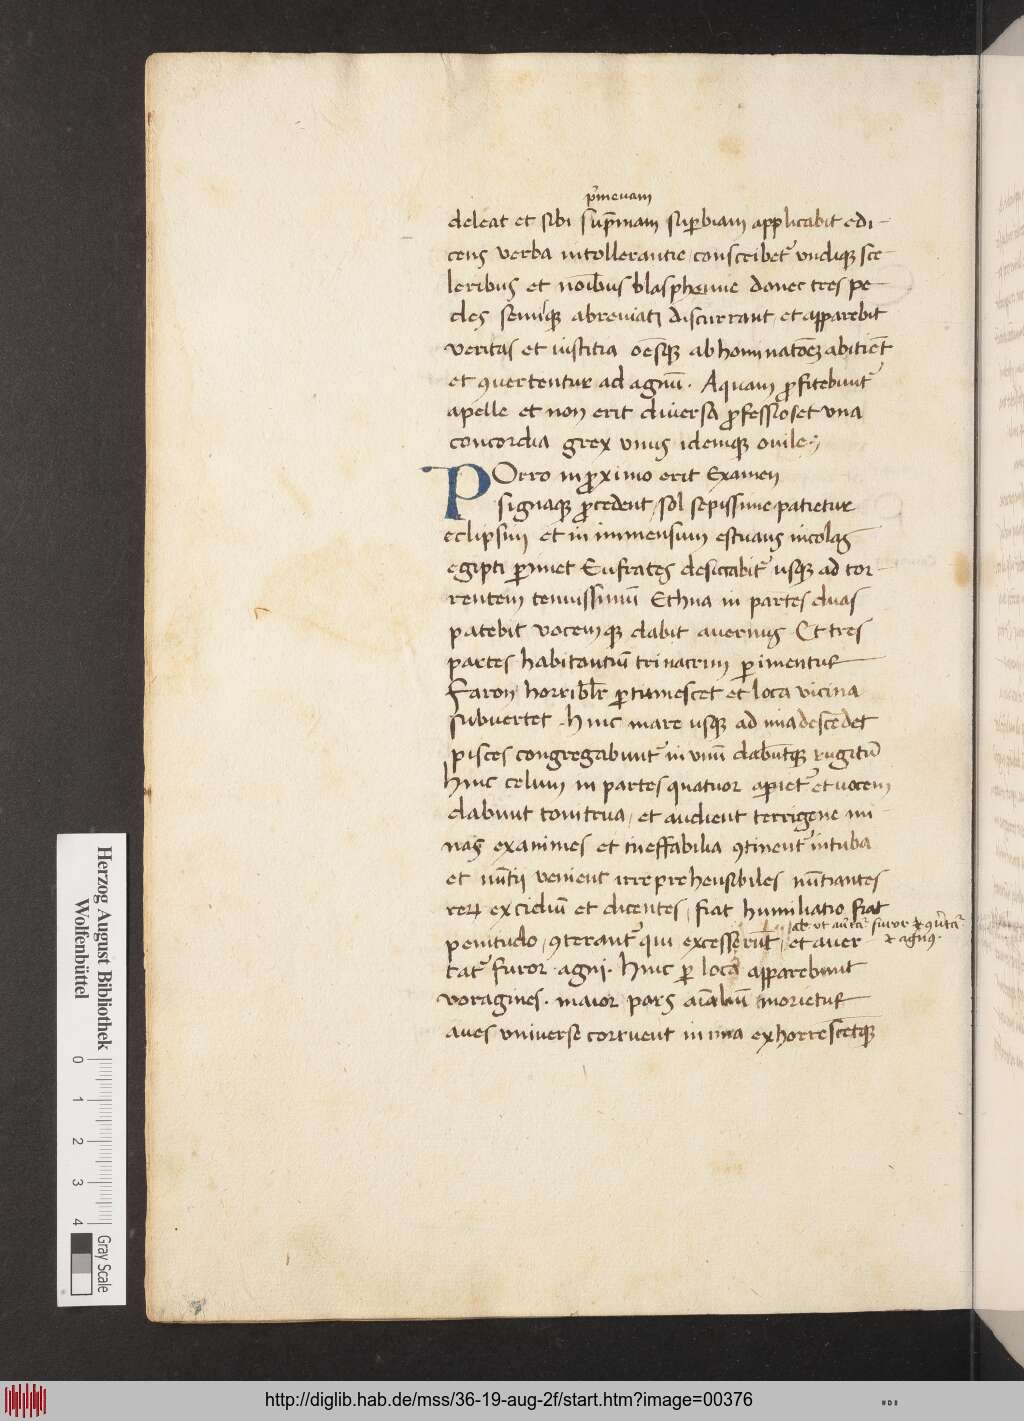 p̾mevam
deleat et sibi sup̄mam sup̱biam applicabit edi-
cens verba intollerantie, conscribet᷑ undiqꝫ sce
leribus et noībus blasphemie donec tres pe-
des semisqꝫ abreviati discurrant, et apparebit
veritas et iustitia oēsqꝫ abhominatōeꝫ abitiēt
et ꝯvertentur ad agnū. Aquam ꝓfitebunt᷑
apelle et non erit diversa ꝓfessio set una
concordia grex unus idemqꝫ ovile
POrro in ꝓximo erit Examen
signaqꝫ ꝓcedent, sol sepissime patietur
eclipsim et in immensum estuans incolas
egipti ꝑimet Eufrates desiccabit᷑ usqꝫ ad tor-
rentem tenuissimū Ethna in partes duas
patebit vocemqꝫ dabit avernus Et tres
partes habitantiū trinacrim ꝑimentur
Faron horribilr̄ ꝑtumescet et loca vicina
subvertet. hinc mare usqꝫ ad ima descēdet
pisces congregabunt᷑ in unū dabūtqꝫ rugitū
hinc celum in partes quatuor apiet᷑ et vocem
dabunt tonitrua, et audient terrigene mi-
nas exanimes et ineffabilia ꝯtinent᷑ in tuba
et nūtii venient irreprehensibiles nūtiantes
rerꝝ excidiū et dicentes, fiat humiliatio fiat
furor
et agnus.
penitudo, ꝯterant᷑ qui excesserūt, et aver
tat᷑ furor agni. hinc ꝑ loca apparebunt
voragines. maior pars aīaliū morietur
aves universe corruent in ima exhorrescētqꝫ
Herzog August Bibliothek
Wolfenbüttel
0 1 2 3 4
Gray Scale
http://diglib.hab.de/mss/36-19-aug-2f/start.htm?image=00376